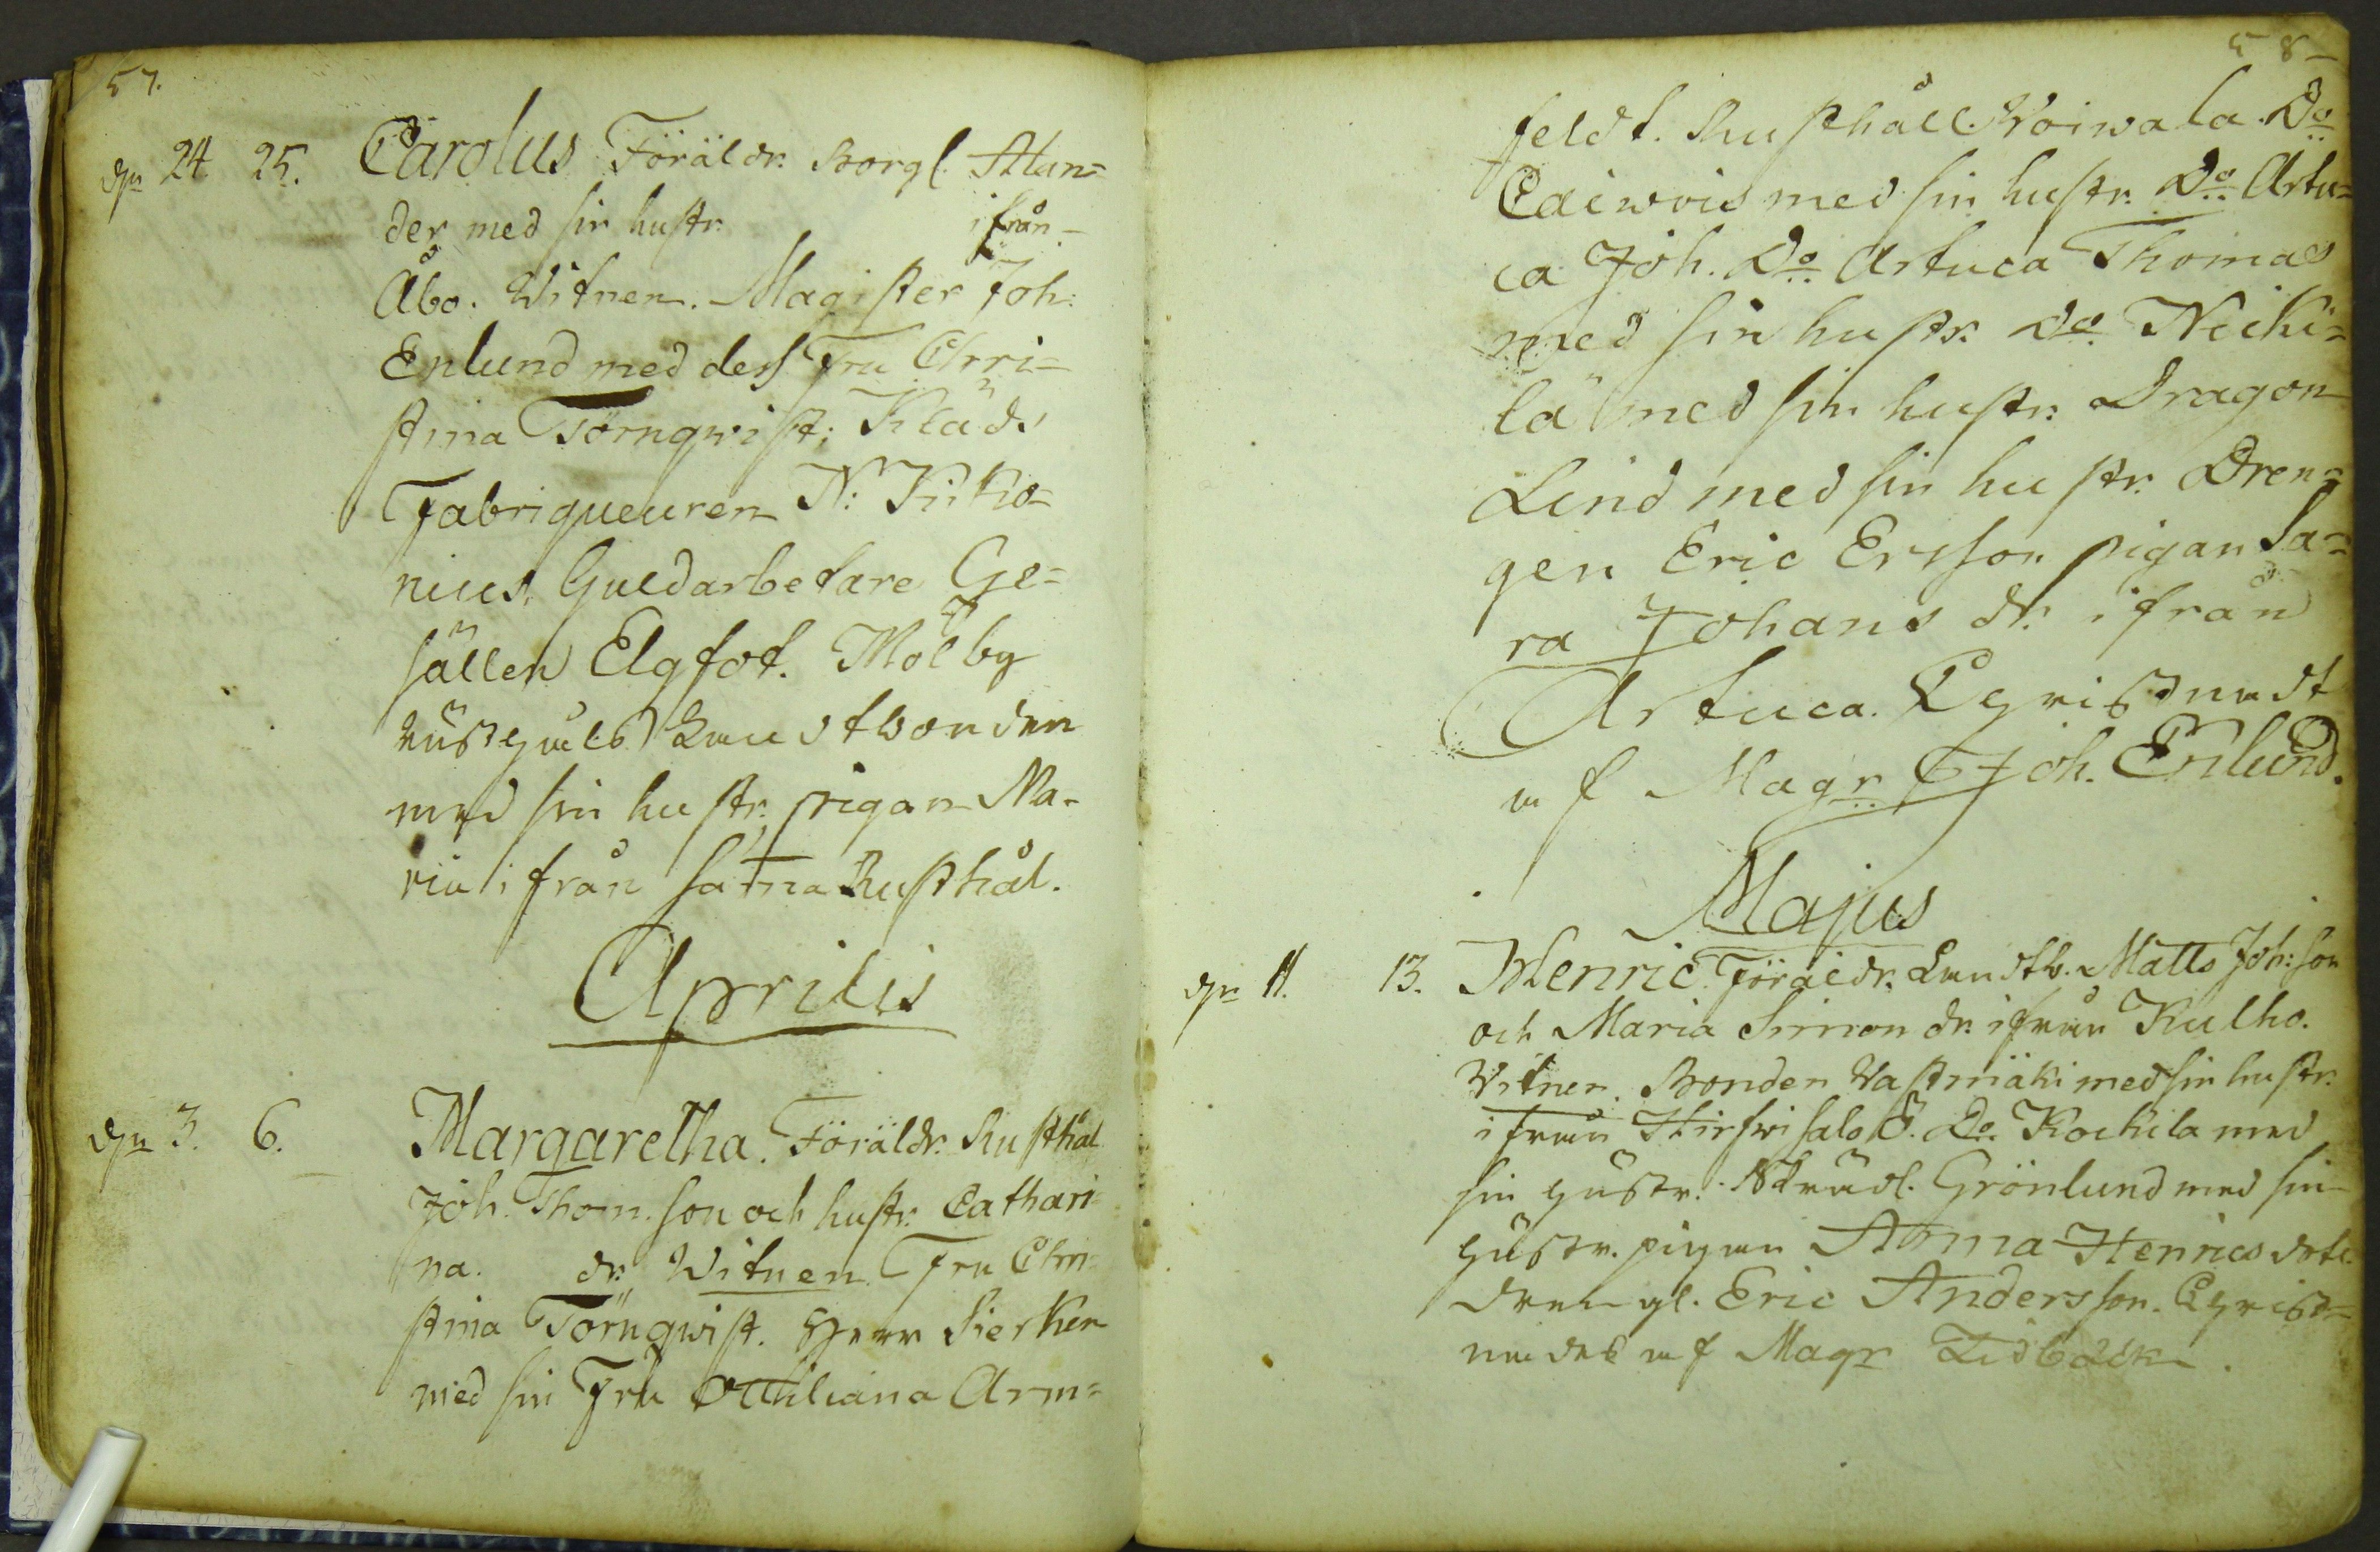 57.
dn 24 25. Carolus Föräldr. Borgl. Alan=
der med sin hustr. ifrån
Åbo. Witnen. Magister Joh:
Enlund med dess Fru Chri=
stina Törnqwist; Kläds
Fabriqueuren N: Kiko=
nius, Guldarbetare Ge=
sällen Elgfot. Mölby
rusthåls Landtbonden
med sin hustr; pigan Ma=
ria ifrån samma Rusthål.
Aprilis
dn 3. 6. Margaretha. Föräldr. Rusthål
Joh. Thom. son och hustr. Cathari=
na. dr. Witnen. Fru Chri=
stina Törnqwist. Herr Sierken
med sin Fru Ottiliana Arm=
58
feldt. Rusthåll. Woiwala. Do
Caiwois med sin hustr. Do Artu=
ca Joh. Do Artuca Thomas
med sin hustr. Do Nicki=
lä med sin hustr. Dragon
Lind med sin hustr. Dren=
gen Eric Ersson pigan Sa=
ra Johans dr. ifrån
Artuca. Christnadt
af Magr Joh. Enlund.
Majus
dn 11. 13. Henric. Föräldr. Landtb. Matts Joh:son
och Maria Simon dr. ifrån Kulho.
Witnen. Bonden Wastmäki med sin hustr.
ifrån Hirfwisalo B. Do. Kockila med
sin hustr. Skrädd. Grönlund med sin
hustr. pigan Anna Henrics dotr.
drengl. Eric Andersson. Christ=
nades af Magr Lidbäck.